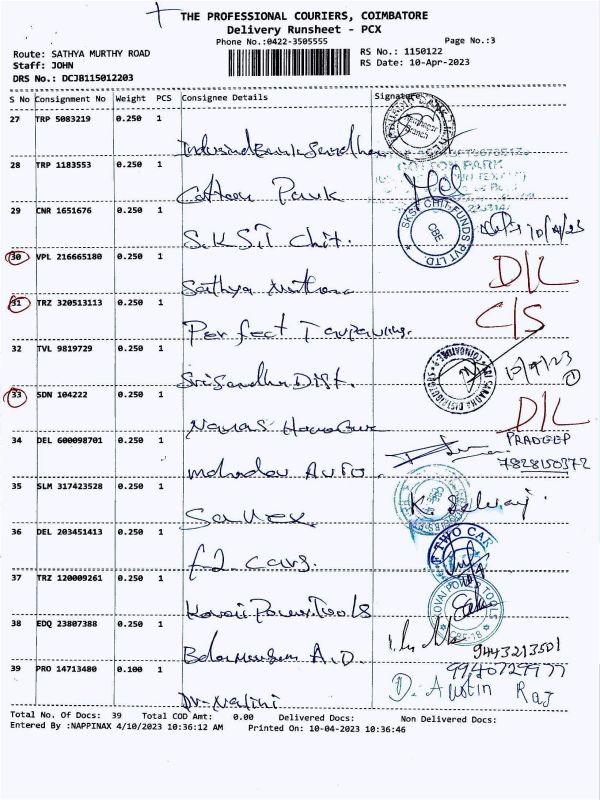 THE PROFESSIONAL COURIERS, COIMBATORE
Delivery Runsheet - PCX
Phone No.:0422-3505555 Page No.:3
Route: SATHYA MURTHY ROAD RS No.: 1150122
Staff: JOHN RS Date: 10-Apr-2023
DRS No.: DCJB115012203
S No Consignment No Weight PCS Consignee Details Signature
27 TRP 5083219 0.250 1
28 TRP 1183553 0.250 1
COTTON PARK
Cotton Park
29 CNR 1651676 0.250 1
SKSIT CHIT FUNDS PVT LTD. CBE
S.K.S.I.T Chit. 10/4/23
30 VPL 216665180 0.250 1 D/L
Sathya
31 TRZ 320513113 0.250 1 C/S
Perfect
32 TVL 9819729 0.250 1
10/4/23
Sri Sandha Dist.
33 SDN 104222 0.250 1 D/L
34 DEL 600098701 0.250 1 PRADEEP
7828150372
Mahadev Auto.
35 SLM 317423528 0.250 1
K. Selvaj.
36 DEL 203451413 0.250 1 TWO CAR
F2 Cars.
37 TRZ 120009261 0.250 1 KOVAI POWER TOOLS
Kovai Power Tools
38 EDQ 23807388 0.250 1 CBE-18
9443213501
39 PRO 14713480 0.100 1 9940729977
Dr. Nalini D. Austin Raj
Total No. Of Docs: 39 Total COD Amt: 0.00 Delivered Docs: Non Delivered Docs:
Entered By :NAPPINAX 4/10/2023 10:36:12 AM Printed On: 10-04-2023 10:36:46